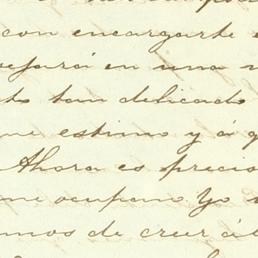 con encargarte
en una
to tan delicado
ue estimo y á q
Ahora es precio
me ocupan. Yo
mos de creer á